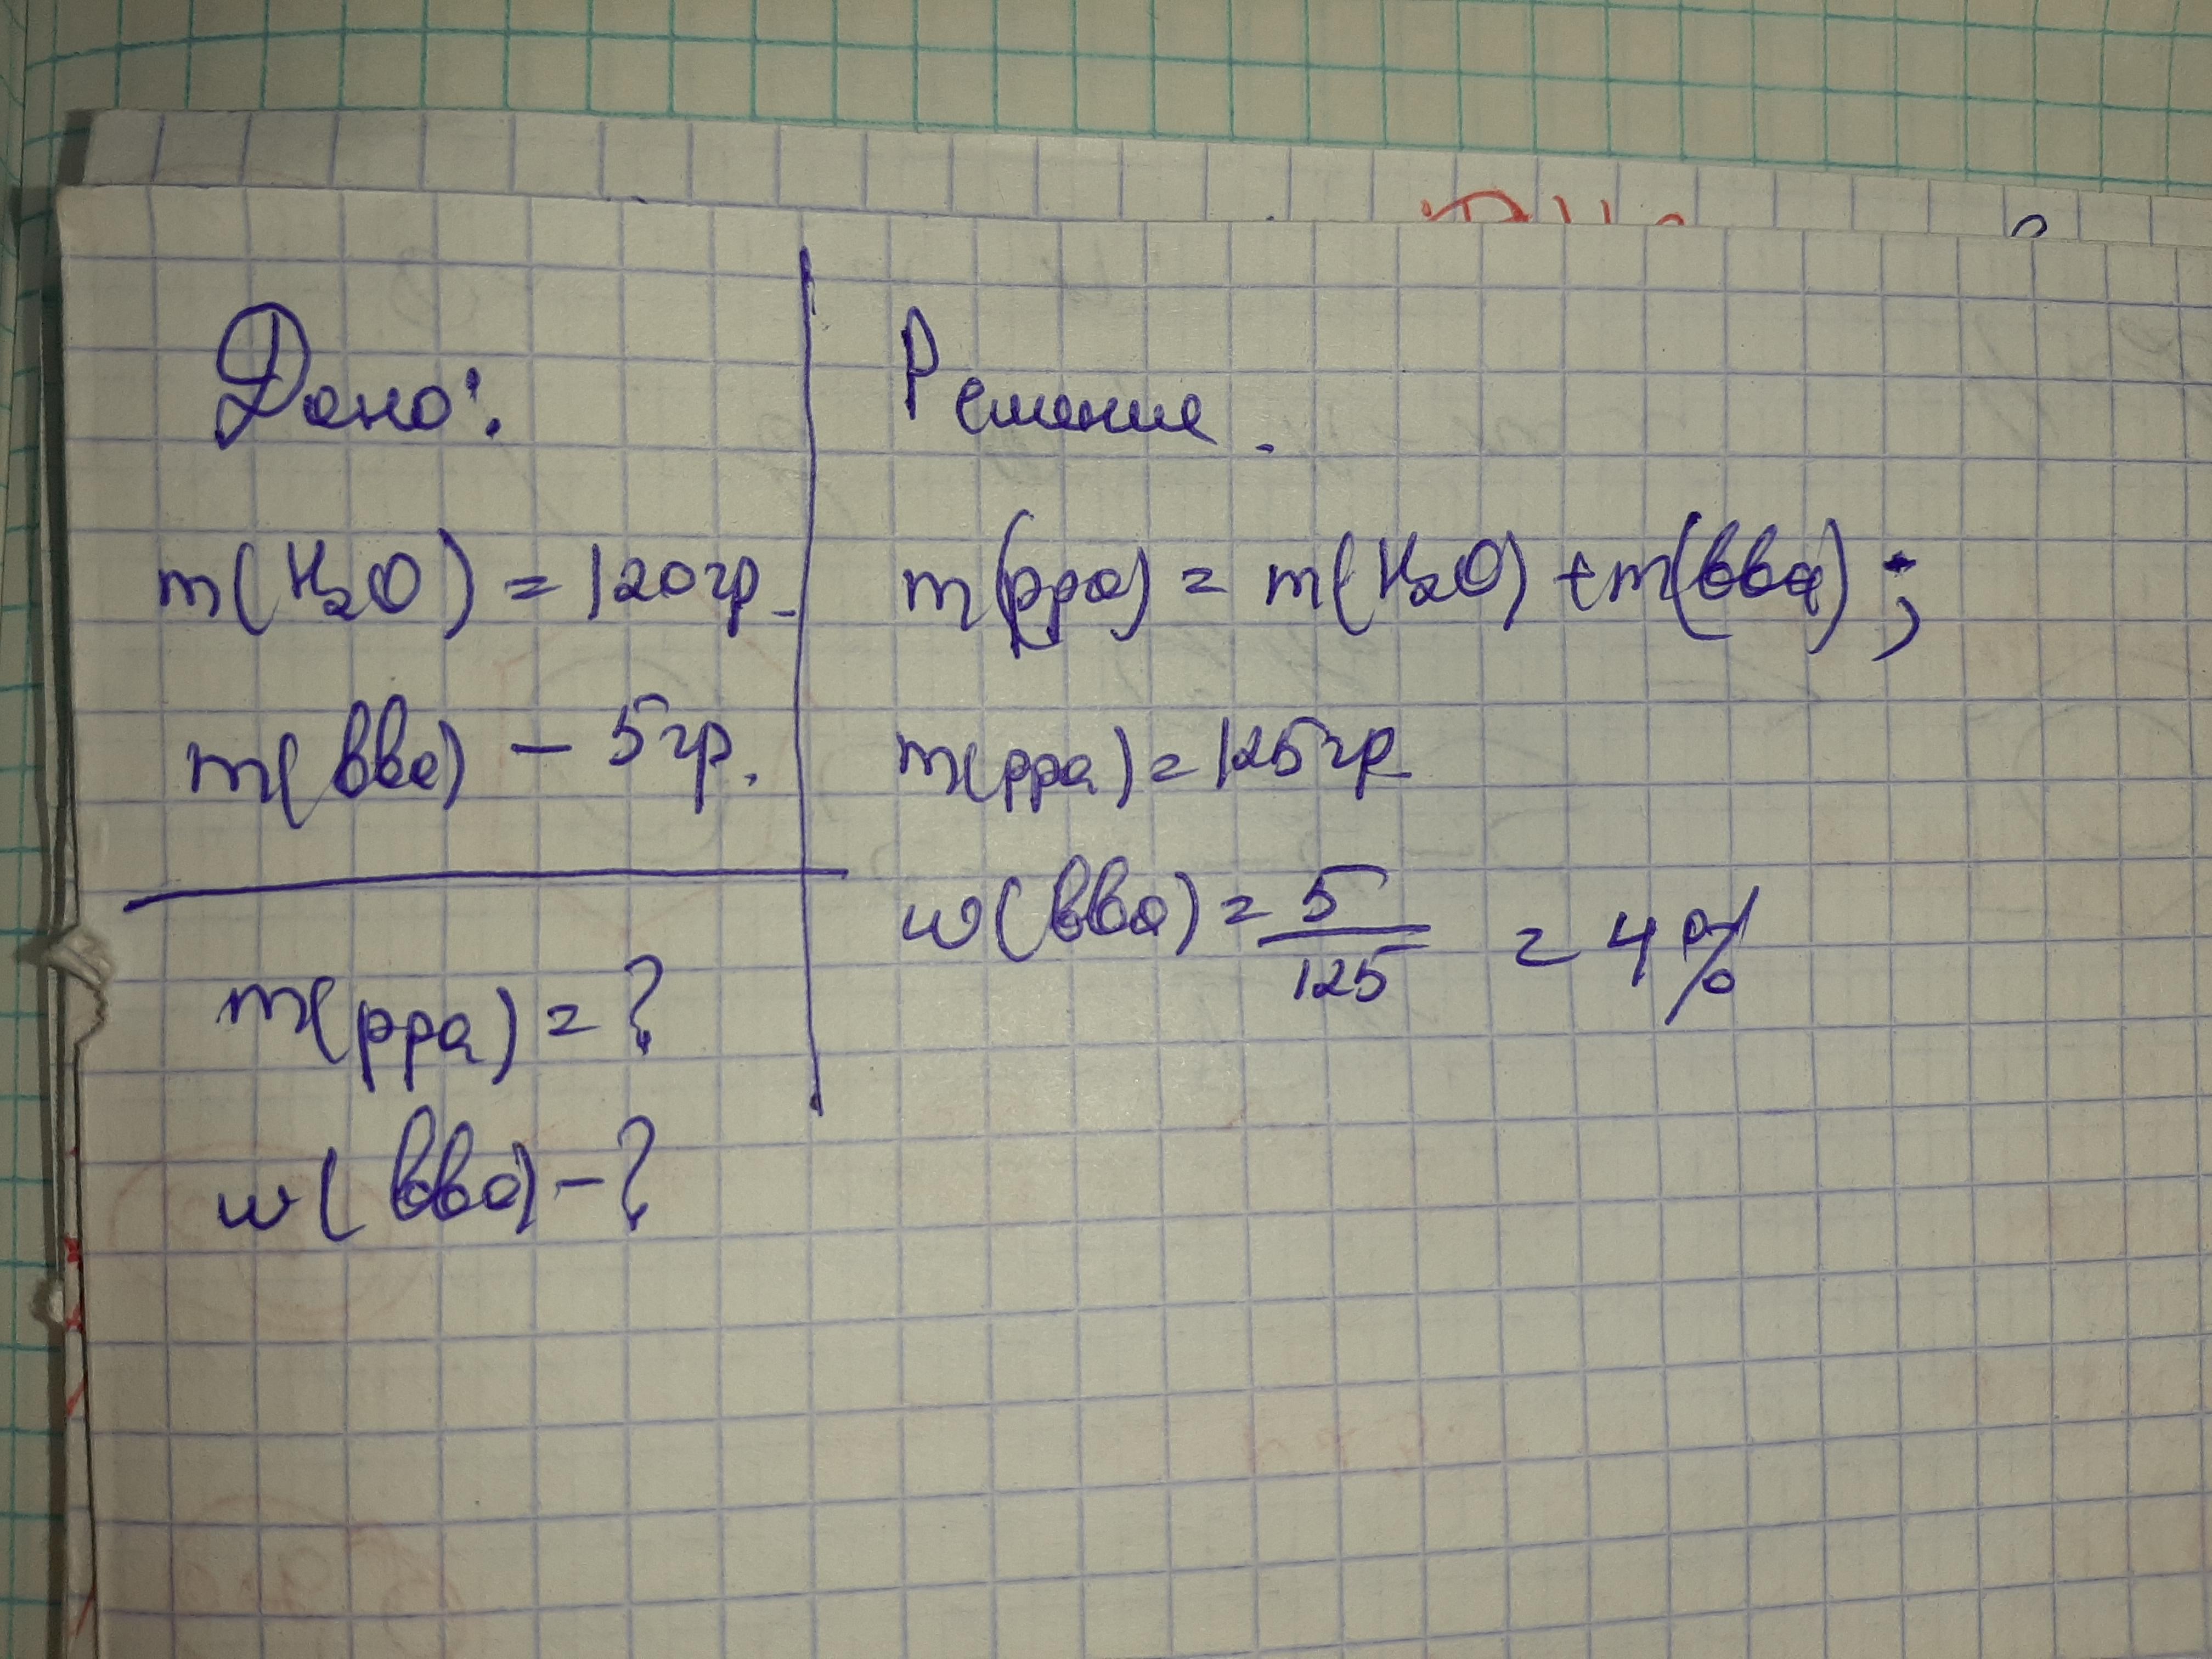 Дано:
m(H₂O) = 120 гр.
m(вва) – 5 гр.
m(рра) = ?
w(вва) – ?
Решение.
m(рра) = m(H₂O) + m(вва);
m(рра) = 125 гр
w(вва) = 5/125 = 4%